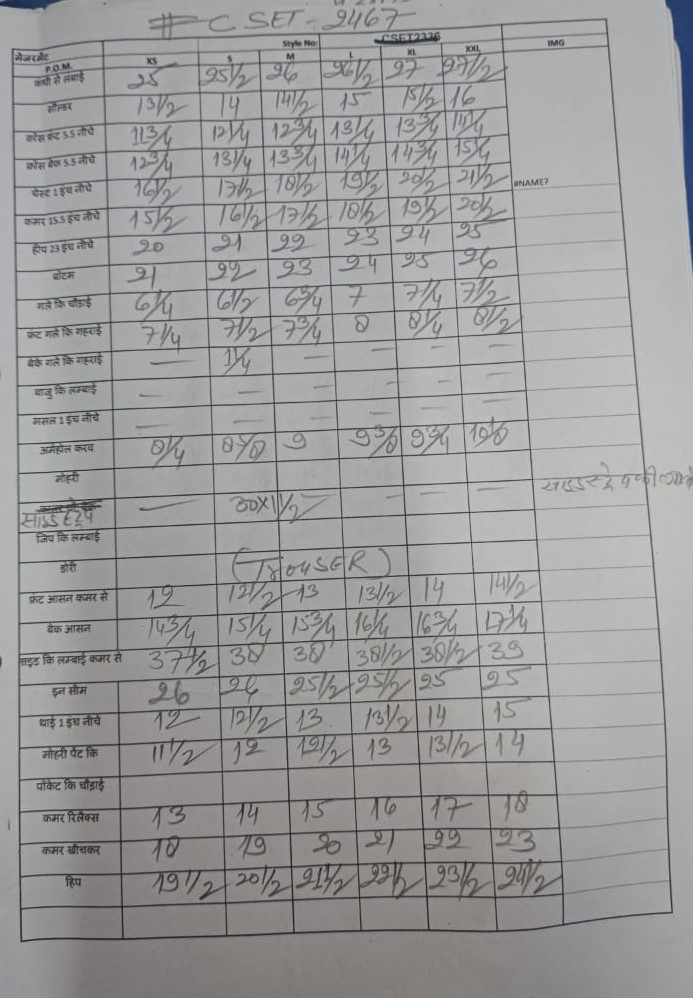 # C SET - 2467
मेजरमेंट Style No: CSET2326 IMG
P.O.M. XS S M L XL XXL
कंधी से लंबाई 25 25 1/2 26 26 1/2 27 27 1/2
सोल्डर 13 1/2 14 14 1/2 15 15 1/2 16
क्रोस फ्रंट 5.5 नीचे 11 3/4 12 1/4 12 3/4 13 1/4 13 3/4 14 1/4
क्रोस बैक 5.5 नीचे 12 3/4 13 1/4 13 3/4 14 1/4 14 3/4 15 1/4
चेस्ट 1 इंच नीचे 16 1/2 17 1/2 18 1/2 19 1/2 20 1/2 21 1/2 #NAME?
कमर 15.5 इंच नीचे 15 1/2 16 1/2 17 1/2 18 1/2 19 1/2 20 1/2
हीप 23 इंच नीचे 20 21 22 23 24 25
बॉटम 21 22 23 24 25 26
गले कि चौडाई 6 1/4 6 1/2 6 3/4 7 7 1/4 7 1/2
फ्रंट गले कि गहराई 7 1/4 7 1/2 7 3/4 8 8 1/4 8 1/2
बैक गले कि गहराई — 1 1/4 — — — —
बाजु कि लम्बाई — — — — — —
मसल 1 इंच नीचे — — — — — —
अर्महोल करव 8 1/4 8 5/8 9 9 3/8 9 3/4 10 1/8
मोहरी
साइड स्ट्रेप — 30X1 1/2 — — — — साइड स्ट्रेप
जिप कि लम्बाई
डोरी (TrouSER)
फ्रंट आसन कमर से 12 12 1/2 13 13 1/2 14 14 1/2
बैक आसन 14 3/4 15 1/4 15 3/4 16 1/4 16 3/4 17 1/4
साइड कि लम्बाई कमर से 37 1/2 38 38 38 1/2 38 1/2 39
इन सीम 26 26 25 1/2 25 1/2 25 25
थाई 1 इंच नीचे 12 12 1/2 13 13 1/2 14 15
मोहरी पेंट कि 11 1/2 12 12 1/2 13 13 1/2 14
पॉकेट कि चौड़ाई
कमर रिलैक्स 13 14 15 16 17 18
कमर खीचकर 18 19 20 21 22 23
हिप 19 1/2 20 1/2 21 1/2 22 1/2 23 1/2 24 1/2